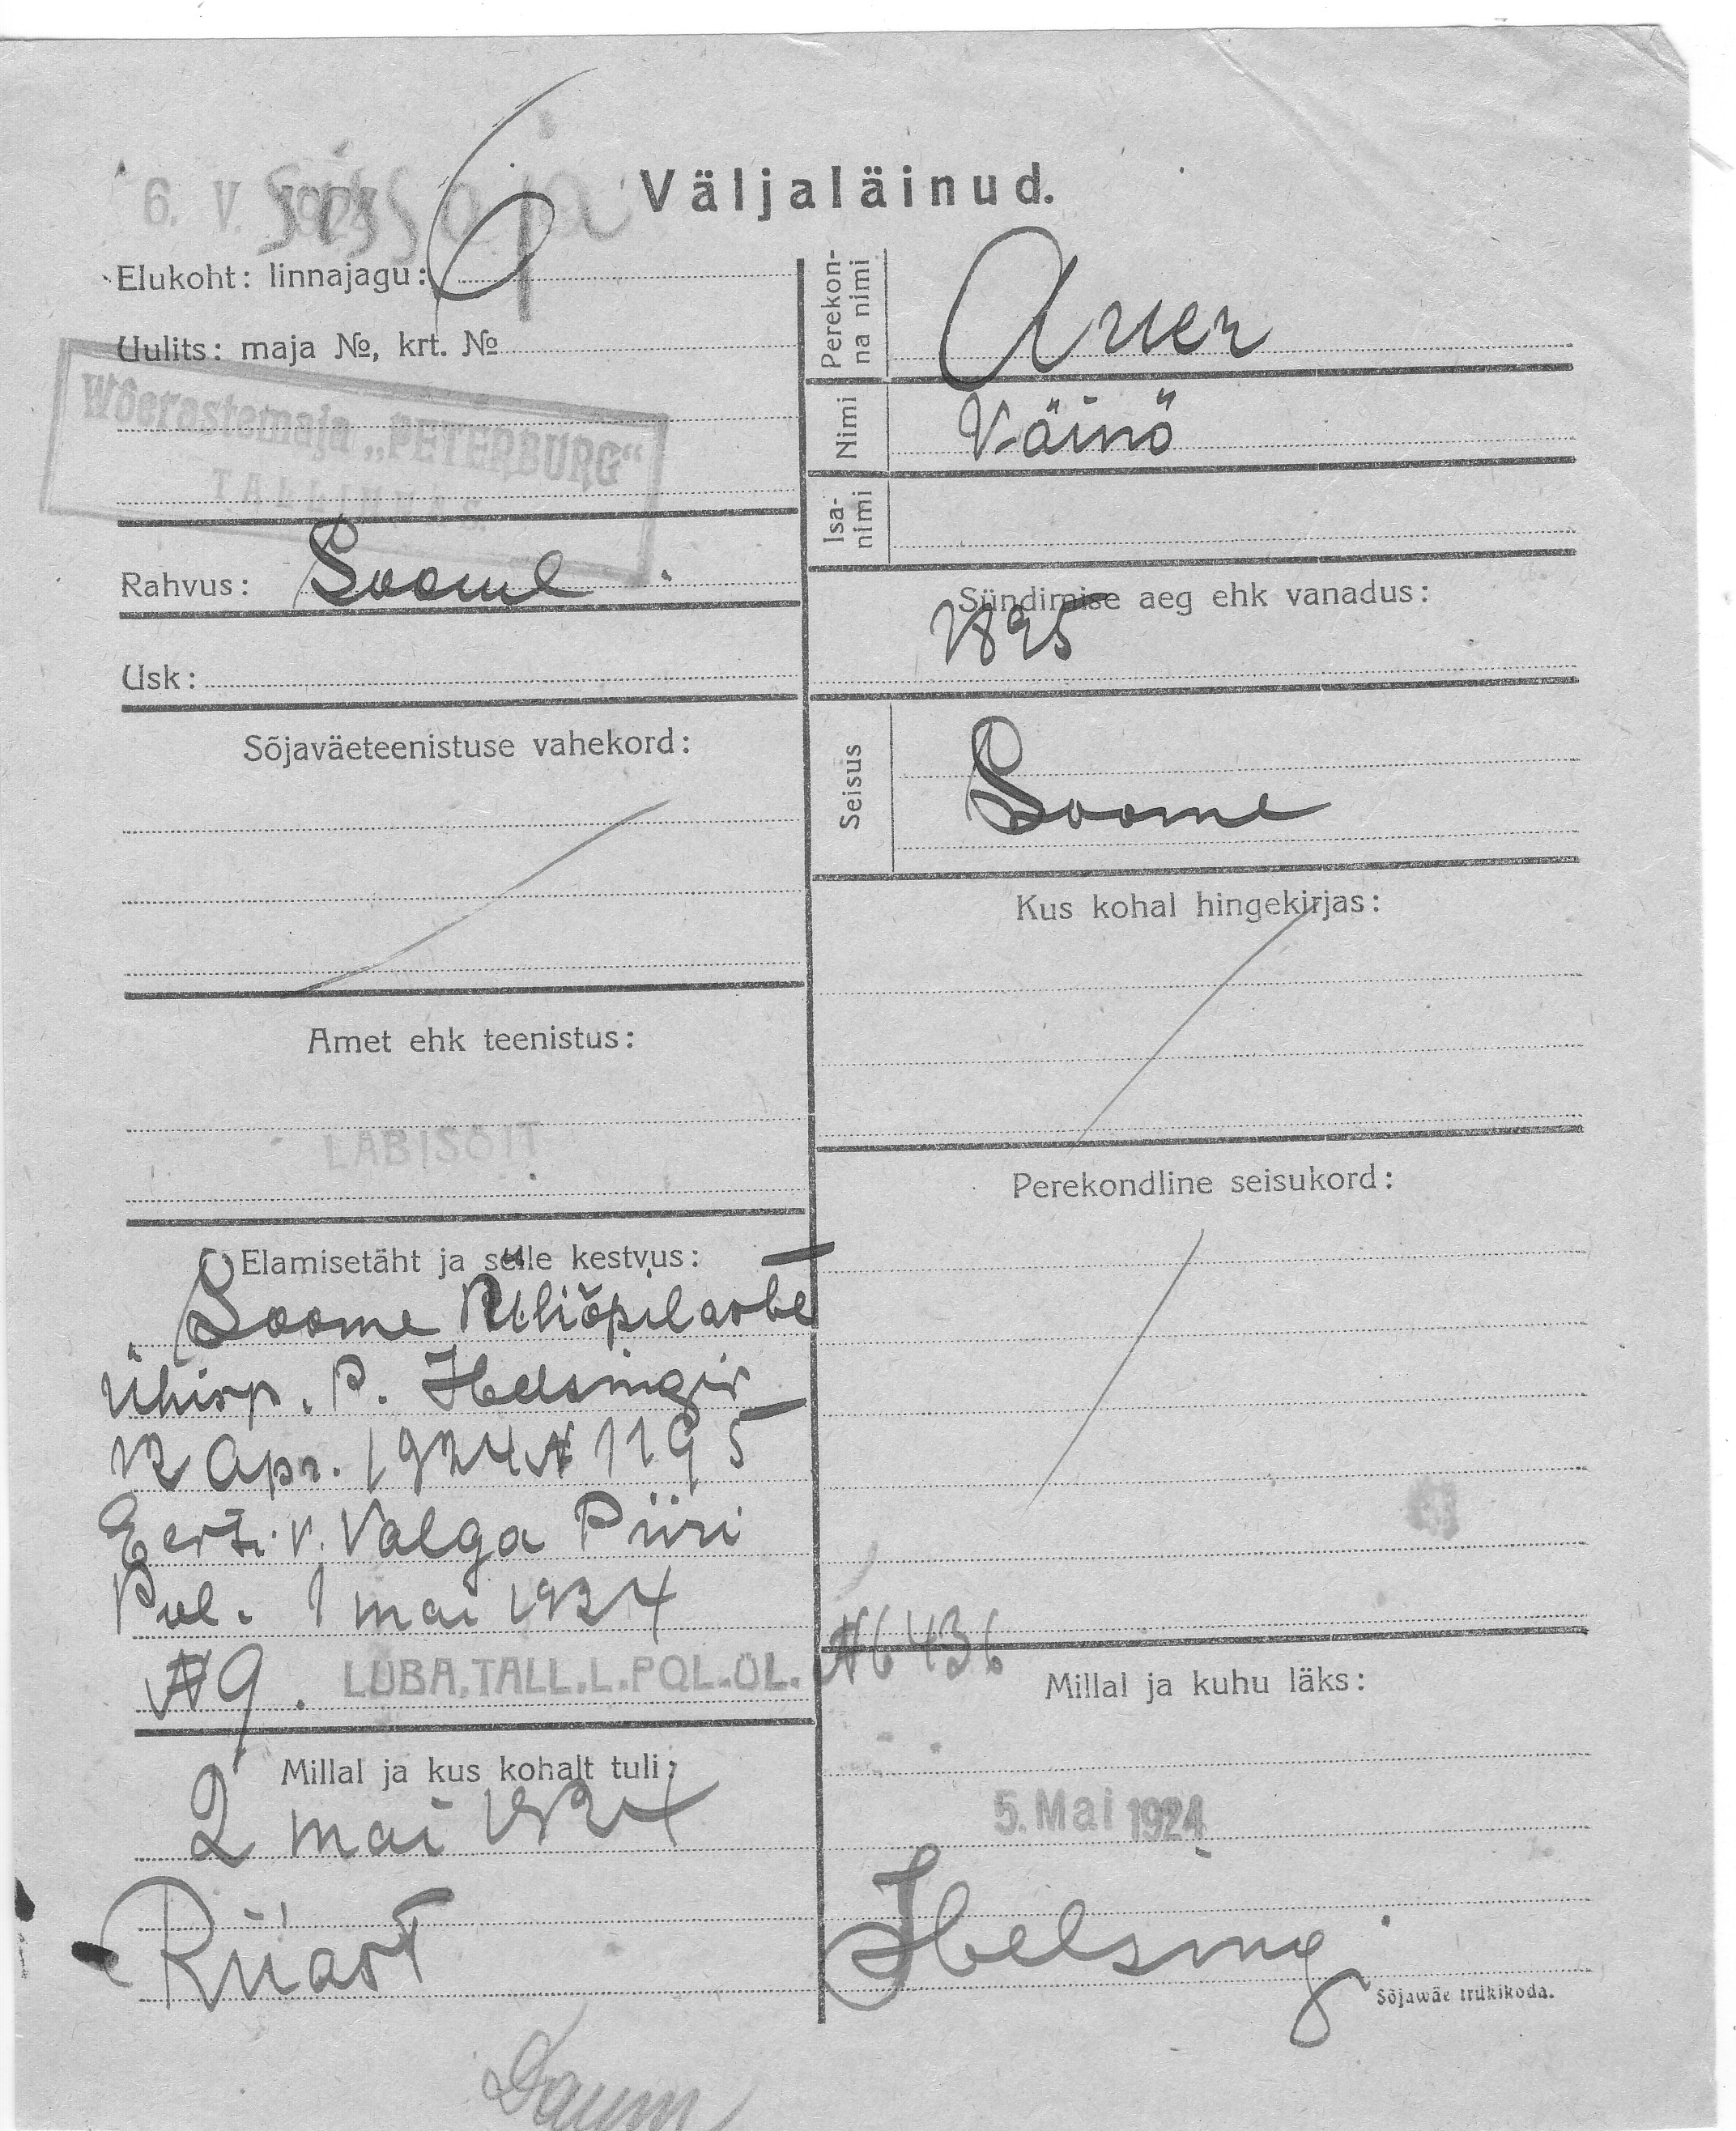 Väljaläinud.
6. V.
Elukoht: linnajagu:
Uulits: maja №, krt. №
Wõerastemaja „PETERBURG“
TALLINNAS.
Rahvus: Soome
Usk:
Sõjaväeteenistuse vahekord:
Amet ehk teenistus:
LÄBISÕIT
Elamisetäht ja selle kestvus:
Soome
Ühisp. P. Helsingis
12 Apr. 1924 N 1195
Eesti v. Valga Piiri
1 mai 1924
N 9. LUBA. TALL. L. POL. ÜL. N 6436
Millal ja kus kohalt tuli:
2 mai 1924
Riiast
Perekon-
na nimi
Auer
Nimi Väinö
Isa-
nimi
Sündimise aeg ehk vanadus:
1895
Seisus Soome
Kus kohal hingekirjas:
Perekondline seisukord:
Millal ja kuhu läks:
5. Mai 1924
Helsing
Sõjawäe trükikoda.